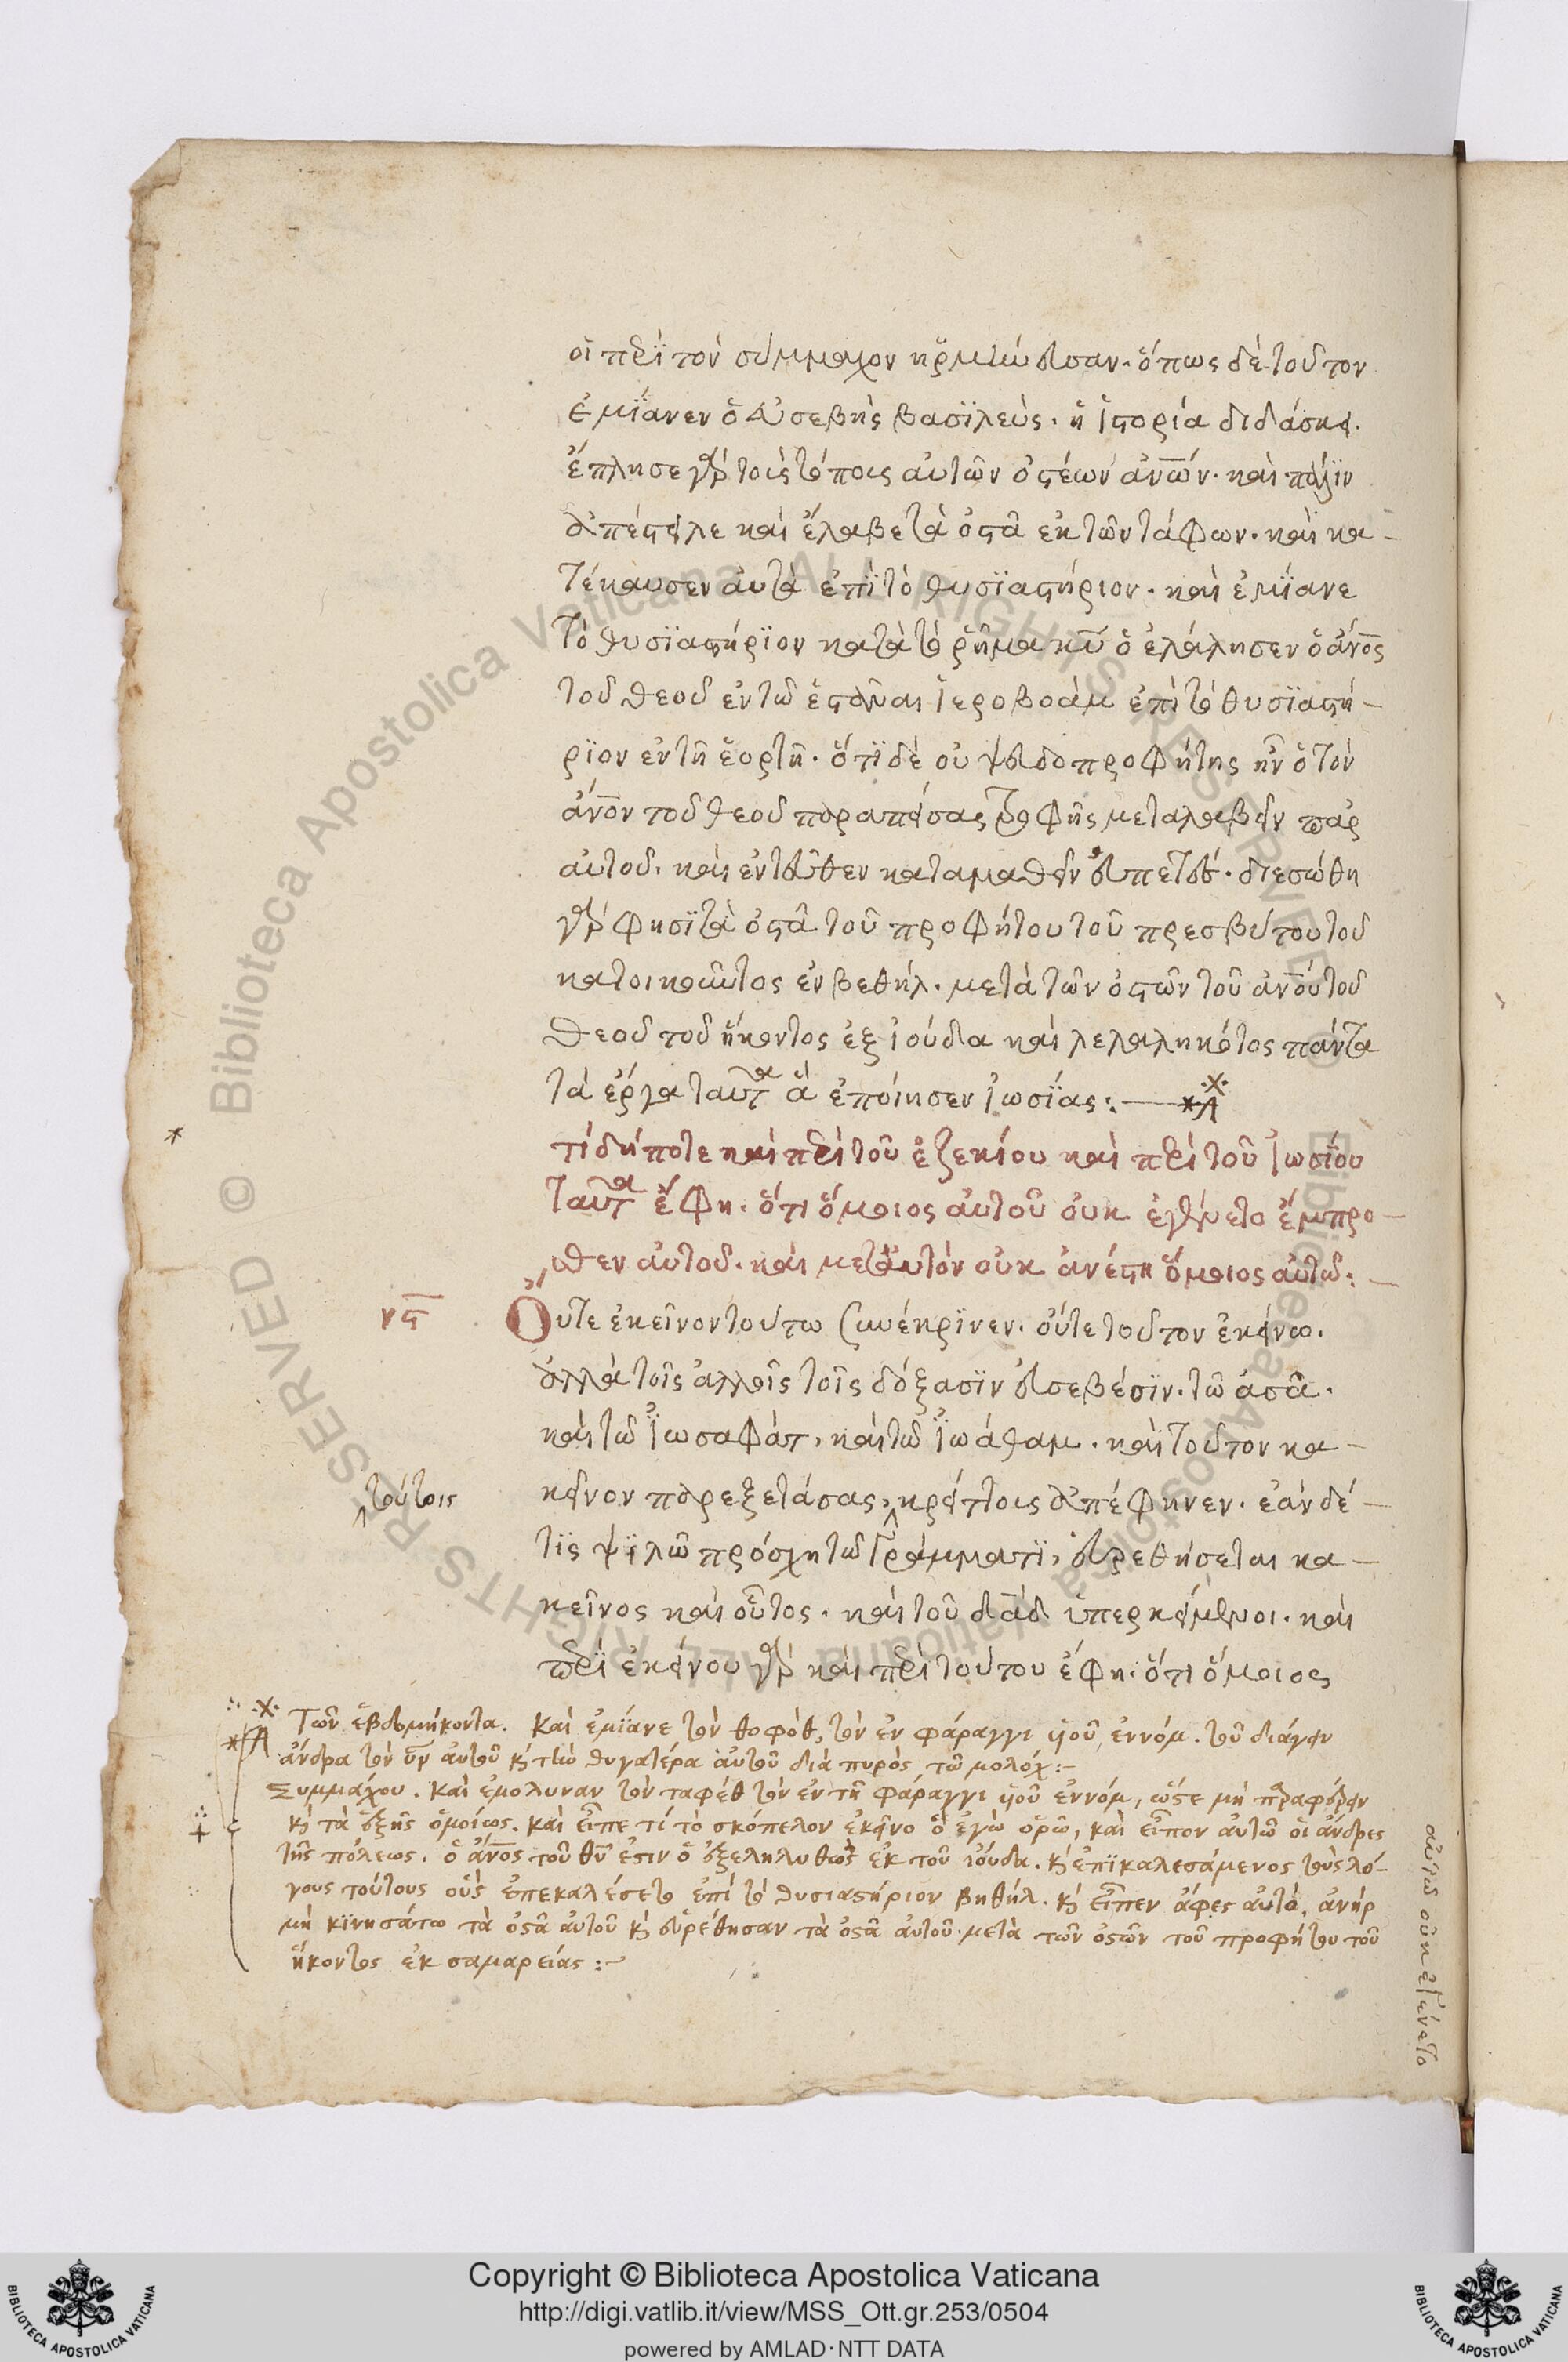 οἱ περὶ τὸν σύμμαχον ἡρμήνευσαν. ὅπως δὲ τοῦτον
ἐμίανεν ὁ εὐσεβὴς βασιλεύς. ἡ ἱστορία διδάσκει.
ἔπλησε γὰρ τοὺς τόπους αὐτῶν ὀστέων ἀνῶν. καὶ πάλιν
ἀπέστειλε καὶ ἔλαβε τὰ ὀστᾶ ἐκ τῶν τάφων. καὶ κα-
τέκαυσεν αὐτὰ ἐπὶ τὸ θυσϊαστήριον. καὶ ἐμίανε
τὸ θυσϊαστήριον κατὰ τὸ ῥῆμα κυ ὃ ἐλάλησεν ὁ ἄνος
τοῦ θεοῦ ἐν τῶ ἑστάναι ἱεροβοὰμ ἐπὶ τὸ θυσϊαστή-
ριον ἐν τῆ ἑορτῆ. ὅτι δὲ οὐ ψευδοπροφήτης ἦν ὁ τὸν
ἄνον τοῦ θεοῦ παραπείσας τροφῆς μεταλαβεῖν παρ
αὐτοῦ. καὶ ἐντεῦθεν καταμαθεῖν εὐπετές. διεσώθη
γὰρ φησὶ τὰ ὀστᾶ τοῦ προφήτου τοῦ πρεσβύτου τοῦ
κατοικοῦντος ἐν βεθήλ. μετὰ τῶν ὀστῶν τοῦ ἀνου τοῦ
θεοῦ τοῦ ἥκοντος ἐξ ἰούδα καὶ λελαληκότος πάντα
τὰ ἔργα ταῦτα ἃ ἐποίησεν ἰωσίας:
τί δήποτε καὶ περὶ τοῦ ἐζεκίου καὶ περὶ τοῦ ἰωσίου
ταῦτα ἔφη. ὅτι ὅμοιος αὐτοῦ οὐκ ἐγένετο ἔμπρο-
σθεν αὐτοῦ. καὶ μετ' αὐτὸν οὐκ ἀνέστη ὅμοιος αὐτῶ:
νς
Οὔτε ἐκεῖνον τούτω συνέκρινεν. οὔτε τοῦτον ἐκείνω.
ἀλλὰ τοῖς ἄλλοις τοῖς δόξασιν εὐσεβέσιν. τῶ ἀσᾶ.
καὶ τῶ ἰωσαφάτ, καὶ τῶ ἰωάθαμ. καὶ τοῦτον κα-
τούτοις
κεῖνον παρεξετάσας, κρείττους ἀπέφηνεν. ἐὰν δέ-
τις ψιλῶ πρόσχη τῶ γράμματι, εὑρεθήσεται κα-
κεῖνος καὶ οὗτος. καὶ τοῦ δαδ ὑπερκείμενοι. καὶ
περὶ ἐκείνου γὰρ καὶ περὶ τούτου ἔφη. ὅτι ὅμοιος
Τῶν ἑβδομήκοντα. Καὶ ἐμίανε τὸν θοφὸθ, τὸν ἐν φάραγγι ὑιοῦ ἐννόμ. τοῦ διάγειν
ἄνδρα τὸν ὑν αὐτοῦ κ τὴν θυγατέρα αὐτοῦ διὰ πυρὸς τῶ μολόχ:-
Συμμάχου. Καὶ ἐμόλυναν τὸν ταφὲθ τὸν ἐν τῆ φάραγγι ὑιοῦ ἐννόμ, ὥστε μὴ παραφέρειν
κ τὰ ἑξῆς ὁμοίως. Καὶ εἶπε τί τὸ σκόπελον ἐκεῖνο ὃ ἐγὼ ὁρῶ, καὶ εἶπον αὐτῶ οἱ ἄνδρες
τῆς πόλεως. ὁ ἄνος τοῦ θυ ἐστιν ὁ ἐξεληλυθὼς ἐκ τοῦ ἰούδα. κ ἐπικαλεσάμενος τοὺς λό-
γους τούτους οὓς ἐπεκαλέσετο ἐπὶ τὸ θυσιαστήριον βηθήλ. κ εἶπεν ἄφες αὐτό, ἀνὴρ
μὴ κινησάτω τὰ ὀστᾶ αὐτοῦ κ εὑρέθησαν τὰ ὀστᾶ αὐτοῦ μετὰ τῶν ὀστῶν τοῦ προφήτου τοῦ
ἥκοντος ἐκ σαμαρείας:-
αὐτῶ οὐκ ἐγένετο
Copyright © Biblioteca Apostolica Vaticana
http://digi.vatlib.it/view/MSS_Ott.gr.253/0504
powered by AMLAD·NTT DATA
BIBLIOTECA APOSTOLICA VATICANA
BIBLIOTECA APOSTOLICA VATICANA
© Biblioteca Apostolica Vaticana ALL RIGHTS RESERVED
© Biblioteca Apostolica Vaticana ALL RIGHTS RESERVED